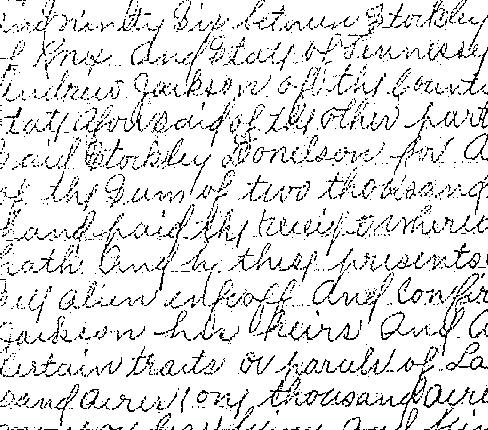 and ninety Six between Stockley
of Knox and State of Tennessey
Andrew Jackson of the Count
State aforesaid of the other part
Said Stockley Donelson for a
of the Sum of two thousand
hand paid the receipt
hath and by these presents
alien enfeoff and confir
Jackson his heirs and a
Certain tracts or parcels of La
sand acres one thousand acre